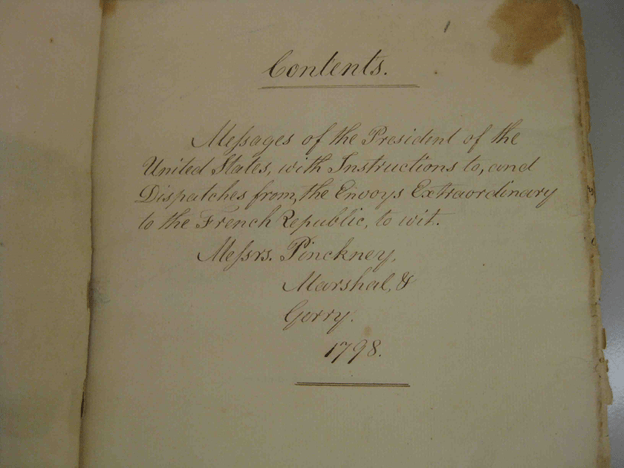 1
Contents.
Meſsages of the President of the
United States, with Instructions to, and
Dispatches from, the Envoys Extraordinary
to the French Republic, to wit.
Meſsrs. Pinckney,
Marshal, &
Gerry.
1798.